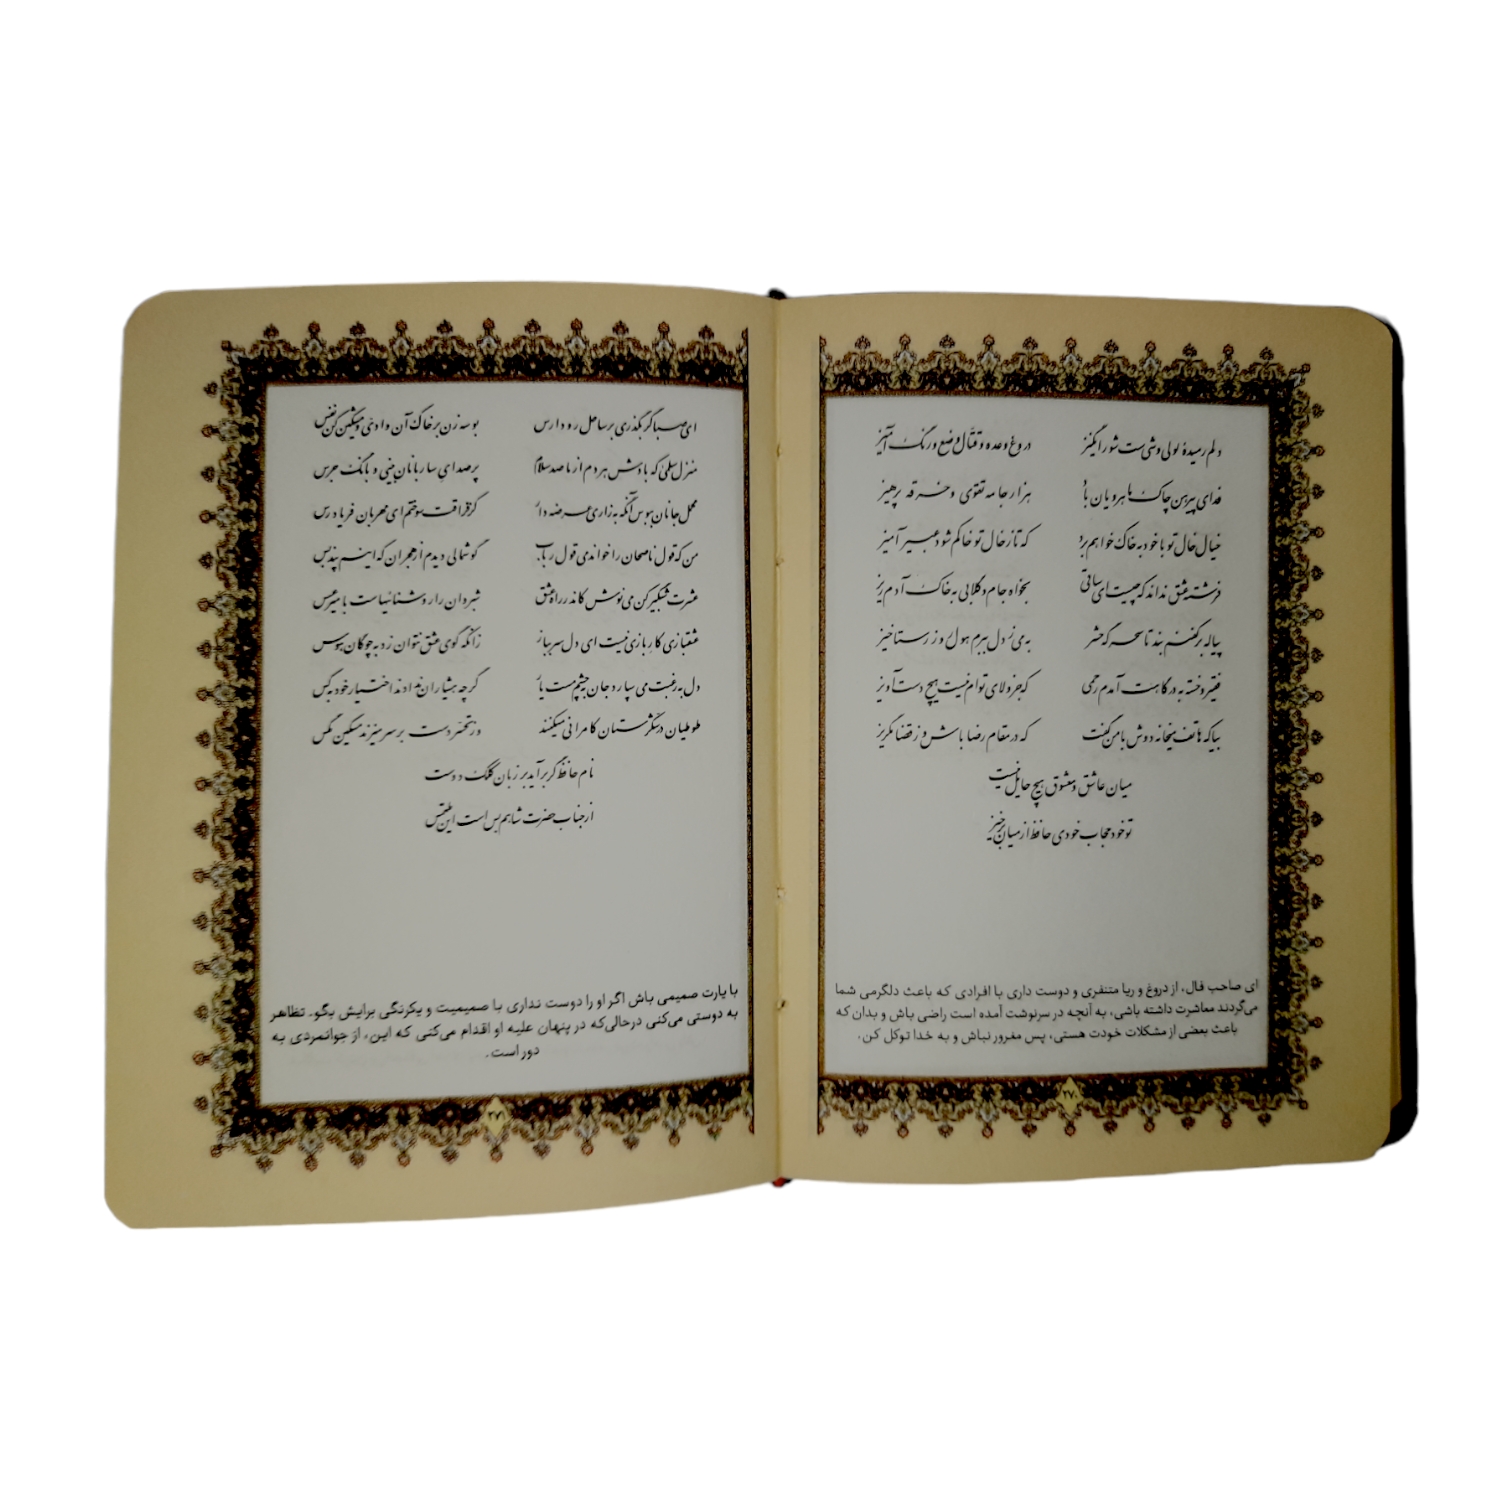 دلم رمیدهٔ لولی وشی ست شورانگیز دروغ وعده و قتّال وضع و رنگ آمیز
فدای پیرهن چاک ماهرویان باد هزار جامه تقوی و خرقه پرهیز
خیال خال تو با خود به خاک خواهم برد که تا ز خال تو خاکم شود عبیر آمیز
فرشته عشق نداند که چیست ای ساقی بخواه جام و گلابی به خاک آدم ریز
پیاله بر کفنم بند تا سحرگه حشر به می ز دل ببرم هول روز رستاخیز
فقیر و خسته به درگاهت آمدم رحمی که جز ولای توام نیست هیچ دست آویز
بیا که هاتف میخانه دوش با من گفت که در مقام رضا باش و ز قضا مگریز
میان عاشق و معشوق هیچ حایل نیست
تو خود حجاب خودی حافظ از میان برخیز
ای صاحب فال، از دروغ و ریا متنفری و دوست داری با افرادی که باعث دلگرمی شما
می‌گردند معاشرت داشته باشی، به آنچه در سرنوشت آمده است راضی باش و بدان که
باعث بعضی از مشکلات خودت هستی، پس مغرور نباش و به خدا توکل کن.
ای صبا گر بگذری بر ساحل رود ارس بوسه زن بر خاک آن وادی و مشکین کن نفس
منزل سلمی که بادش هر دم از ما صد سلام پر صدای ساربانان بینی و بانگ جرس
محمل جانان ببوس آنگه به زاری عرضه دار کز فراقت سوختم ای مهربان فریاد رس
من که قول ناصحان را خواندمی قول رباب گوشمالی دیدم از هجران که اینم پند بس
عشرت شبگیر کن می نوش کاندر راه عشق شبروان را روشنائیهاست با میر عسس
عشقبازی کار بازی نیست ای دل سر بباز زانکه گوی عشق نتوان زد به چوگان هوس
دل به رغبت می سپارد جان به چشم مست یار گرچه هشیاران ندادند اختیار خود به کس
طوطیان در شکرستان کامرانی میکنند وز تحسّر دست بر سر میزند مسکین مگس
نام حافظ گر برآید بر زبان کلک دوست
از جناب حضرت شاهم بس است این ملتمس
با یارت صمیمی باش اگر او را دوست نداری با صمیمیت و یکرنگی برایش بگو. تظاهر
به دوستی می‌کنی درحالی‌که در پنهان علیه او اقدام می‌کنی که این، از جوانمردی به
دور است.